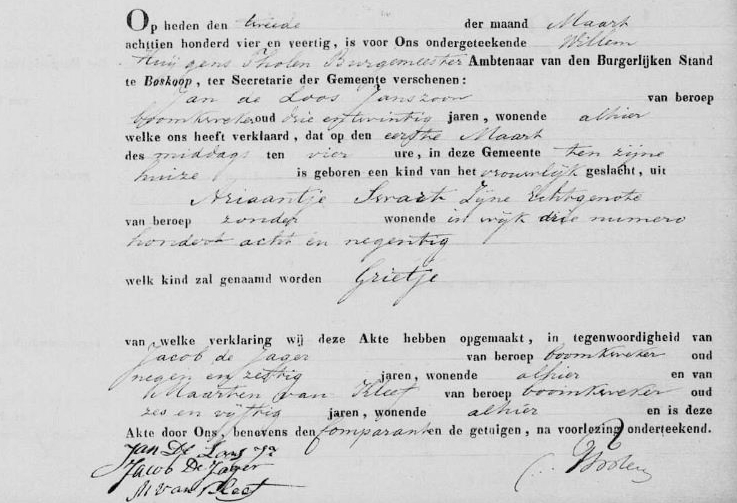 Op heden den tweede der maand Maart
achttien honderd vier en veertig, is voor Ons ondergeteekende Willem
Huijgens Tholen Burgemeester Ambtenaar van den Burgerlijken Stand
te Boskoop, ter Secretarie der Gemeente verschenen:
Jan de Loos Janszoon van beroep
boomkweker oud drie en twintig jaren, wonende alhier
welke ons heeft verklaard, dat op den eerste Maart
des middags ten vier ure, in deze Gemeente ten zijne
huize is geboren een kind van het vrouwlijk geslacht, uit
Ariaantje Swart Zijne Echtgenote
van beroep zonder wonende in wijk drie numero
hondert acht en negentig
welk kind zal genaamd worden Grietje
van welke verklaring wij deze Akte hebben opgemaakt, in tegenwoordigheid van
Jacob de Jager van beroep boomkweker oud
negen en zestig jaren, wonende alhier en van
Maarten van Kleef van beroep boomkweker oud
zes en vijftig jaren, wonende alhier en is deze
Akte door Ons, benevens den Comparant en de getuigen, na voorlezing onderteekend.
Jan De Loos Jz
Jacob De Jager
M van Kleef
Tholen